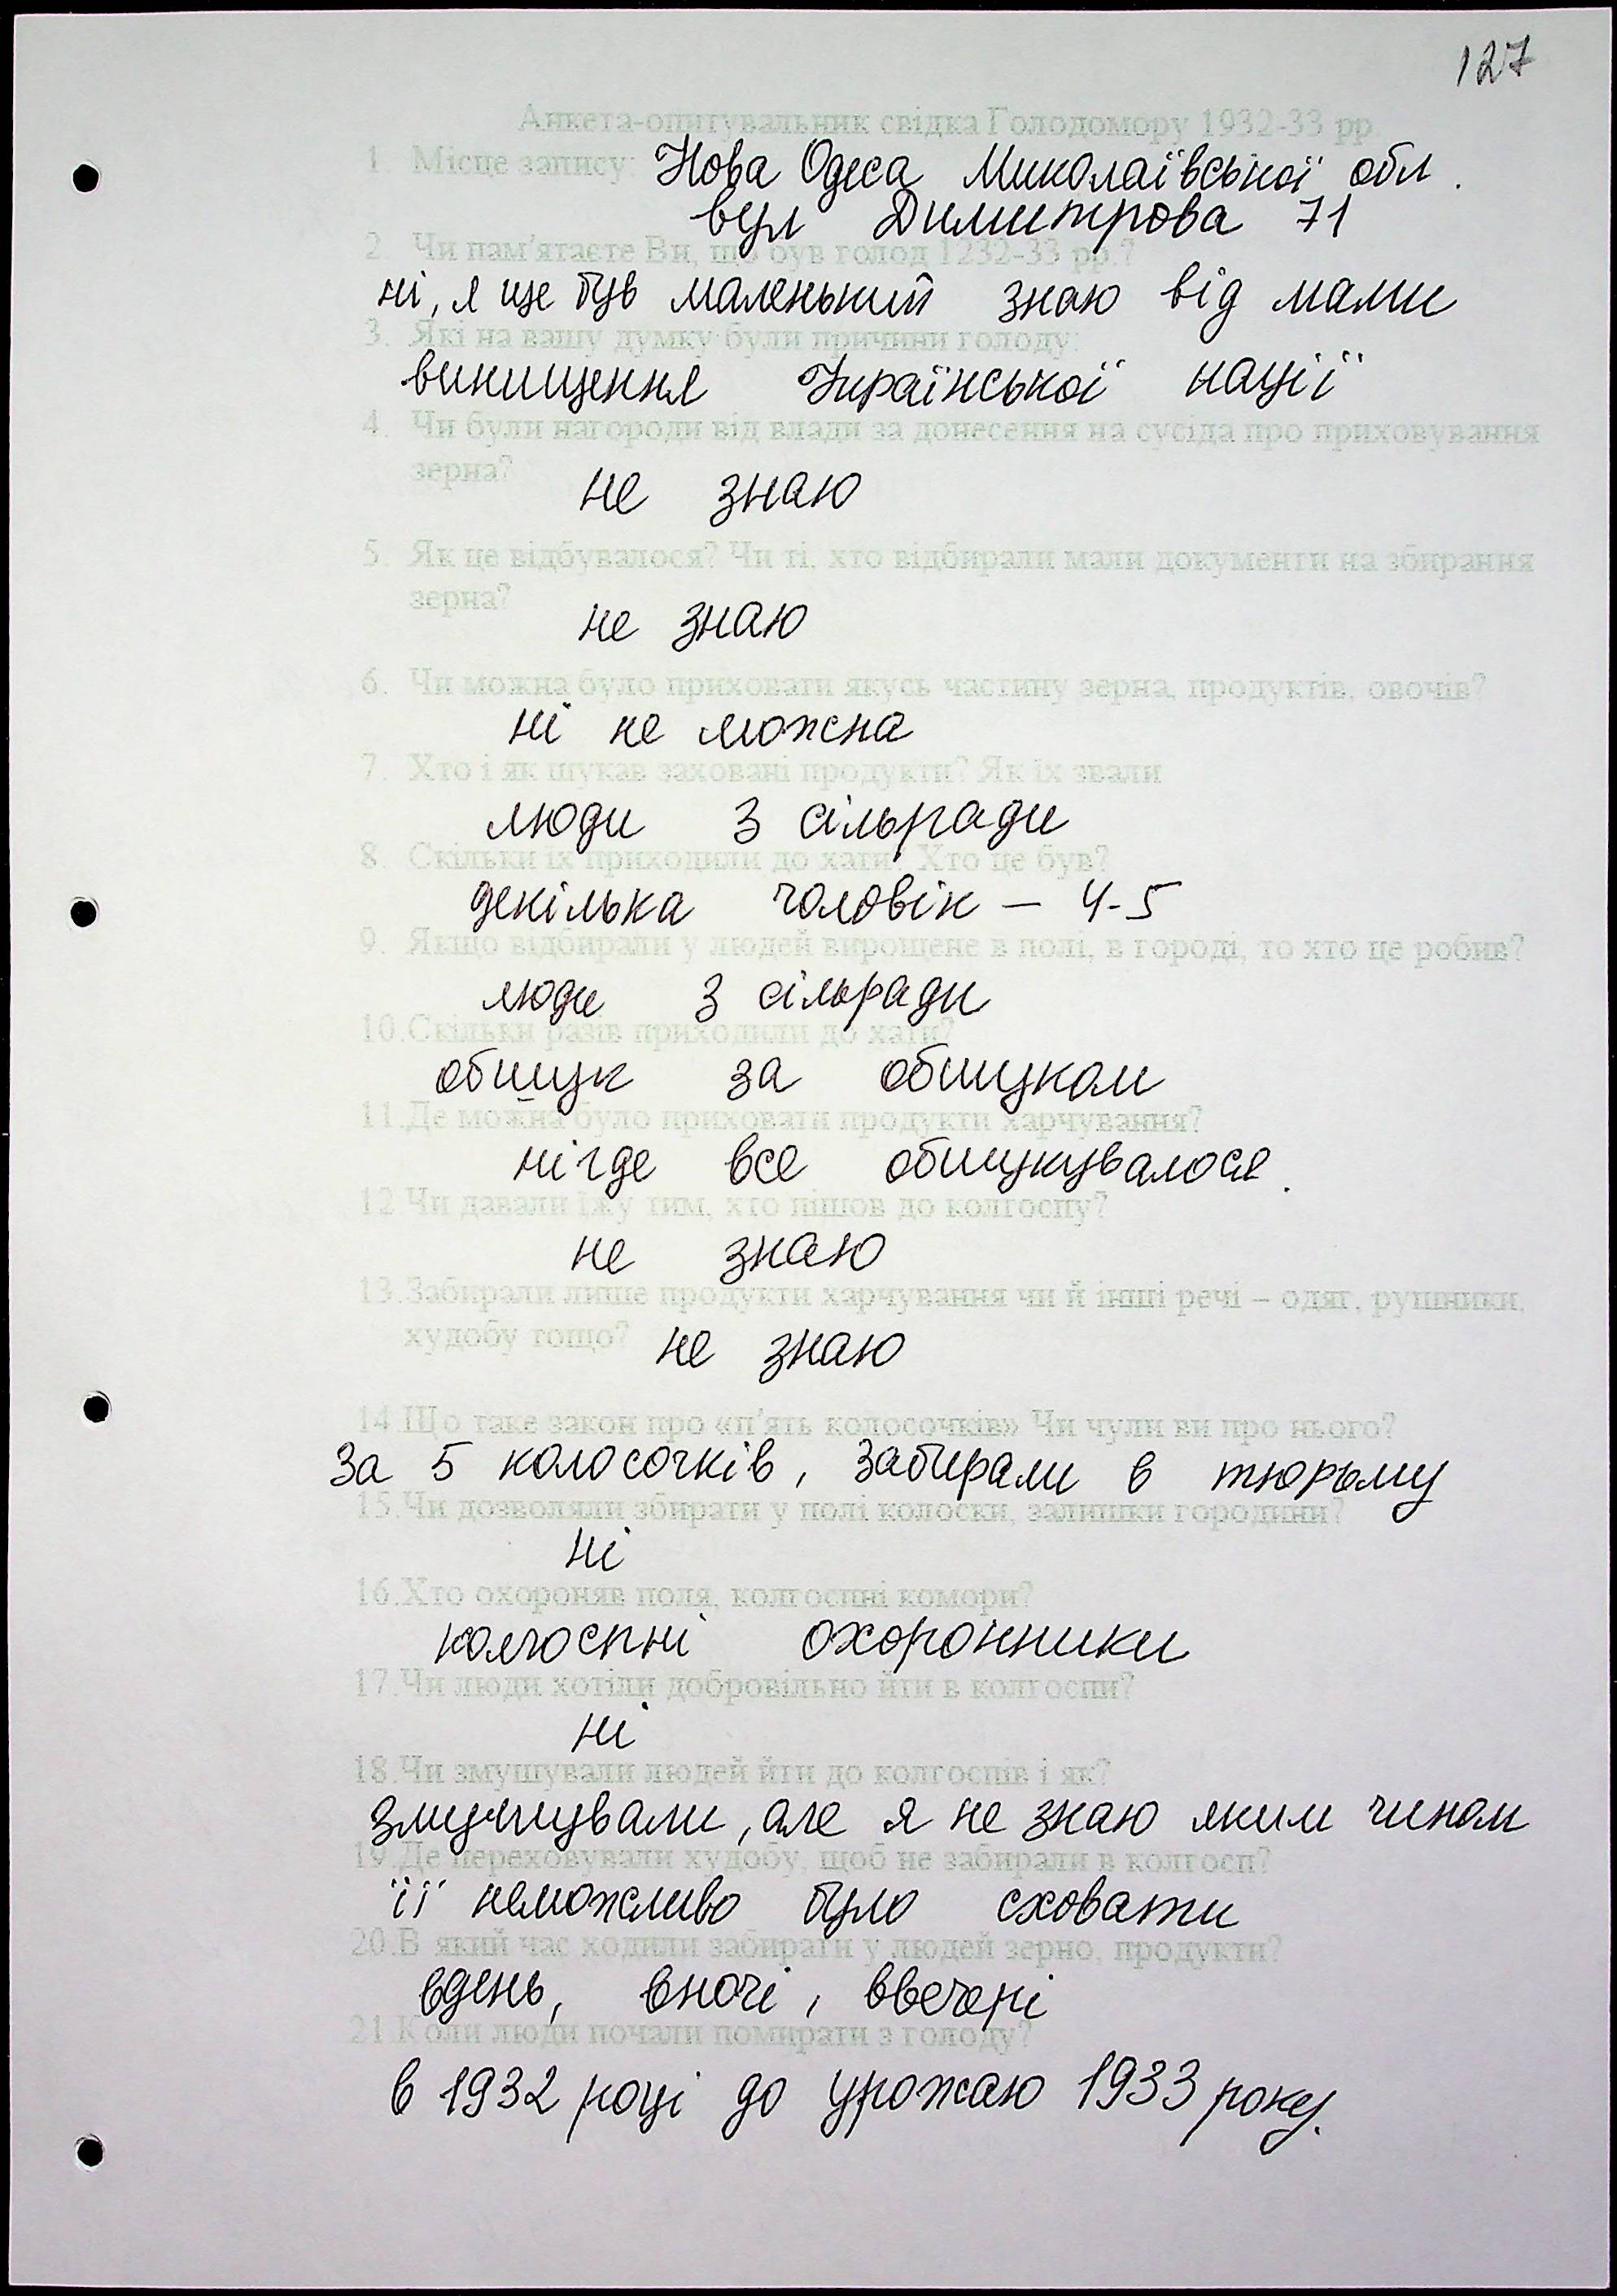 127
Анкета-опитувальник свідка Голодомору 1932-33 рр
1. Місце запису: Нова Одеса Миколаївської обл.
вул Димитрова 71
2. Чи пам'ятаєте Ви, що був голод 1232-33 рр.?
ні, я ще був маленький знаю від мами
3. Які на вашу думку були причини голоду:
винищення Української нації
4. Чи були нагороди від влади за донесення на сусіда про приховування
зерна? не знаю
5. Як це відбувалося? Чи ті, хто відбирали мали документи на збирання
зерна? не знаю
6. Чи можна було приховати якусь частину зерна, продуктів, овочів?
ні не можна
7. Хто і як шукав заховані продукти? Як їх звали
люди з сільради
8. Скільки їх приходили до хати? Хто це був?
декілька чоловік – 4-5
9. Якщо відбирали у людей вирощене в полі, в городі, то хто це робив?
люди з сільради
10.Скільки разів приходили до хати?
обшук за обшуком
11.Де можна було приховати продукти харчування?
нігде все обшукувалося.
12.Чи давали їжу тим, хто пішов до колгоспу?
не знаю
13.Забирали лише продукти харчування чи й інші речі – одяг, рушники,
худобу тощо? не знаю
14.Що таке закон про «п'ять колосочків» Чи чули ви про нього?
За 5 колосочків, забирали в тюрьму
15.Чи дозволяли збирати у полі колоски, залишки городини?
ні
16.Хто охороняв поля, колгоспні комори?
колгоспні охоронники
17.Чи люди хотіли добровільно йти в колгоспи?
ні
18.Чи змушували людей йти до колгоспів і як?
змушували, але я не знаю яким чином
19.Де переховували худобу, щоб не забирали в колгосп?
її неможливо було сховати
20.В який час ходили забирати у людей зерно, продукти?
вдень, вночі, ввечері
21.Коли люди почали помирати з голоду?
в 1932 році до урожаю 1933 року.